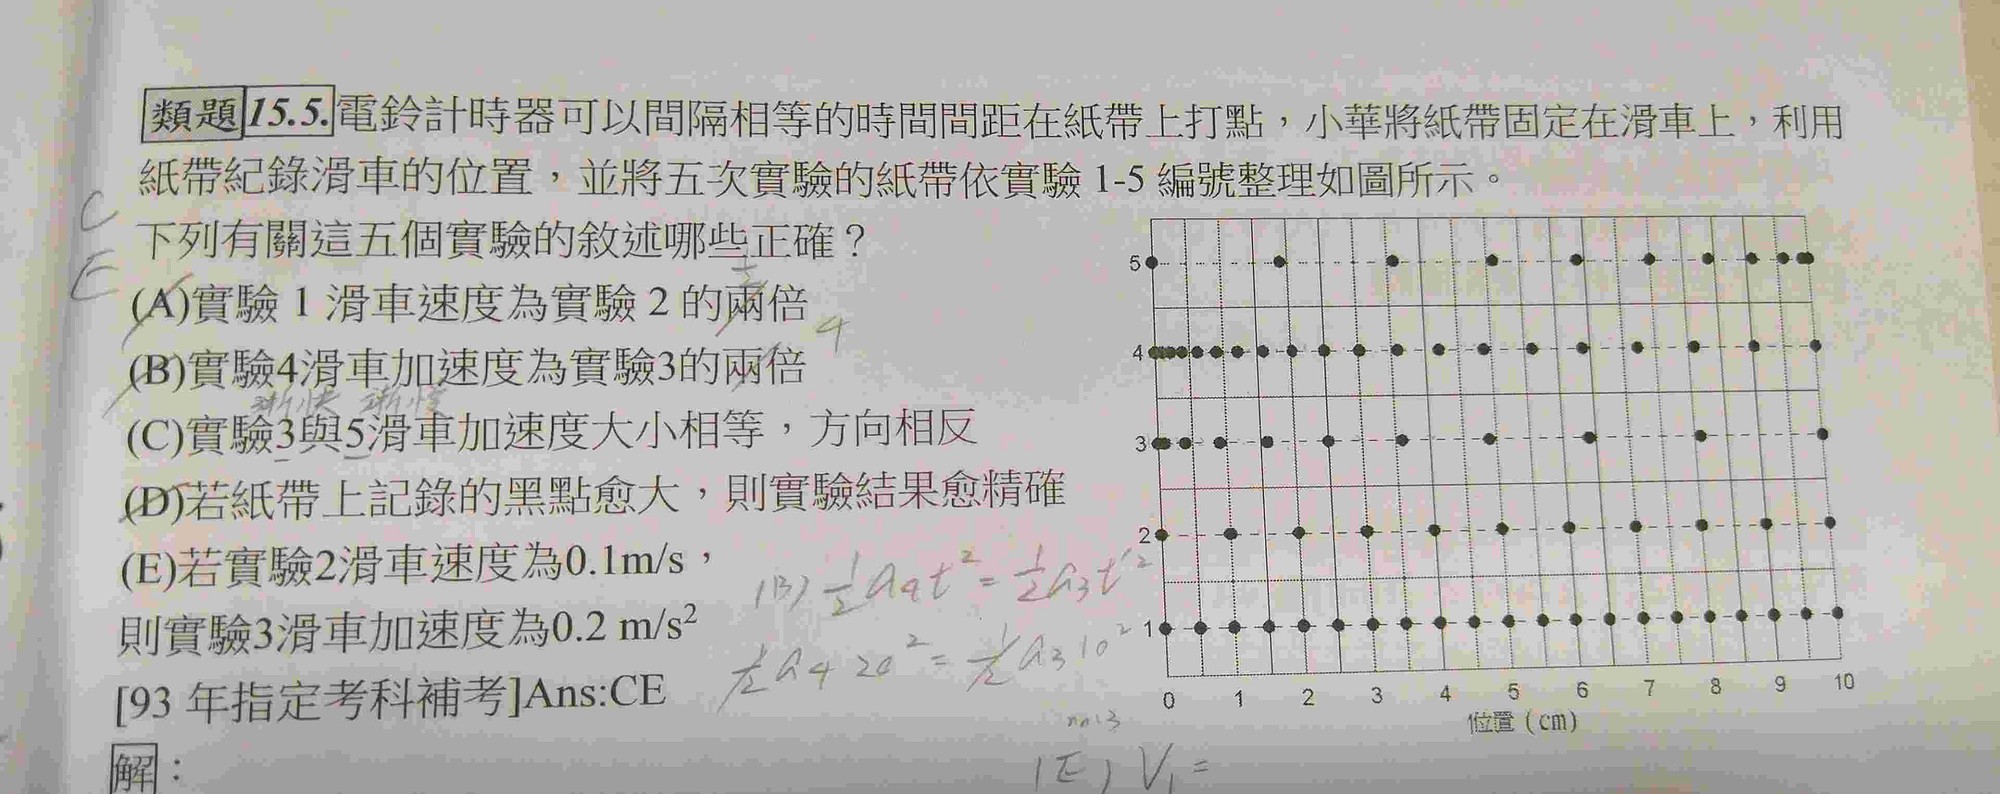 類題 15.5. 電鈴計時器可以間隔相等的時間間距在紙帶上打點，小華將紙帶固定在滑車上，利用
紙帶紀錄滑車的位置，並將五次實驗的紙帶依實驗 1-5 編號整理如圖所示。
C
下列有關這五個實驗的敘述哪些正確？
E
(A)實驗 1 滑車速度為實驗 2 的兩倍
4
(B)實驗4滑車加速度為實驗3的兩倍
漸快 漸慢
(C)實驗3與5滑車加速度大小相等，方向相反
(D)若紙帶上記錄的黑點愈大，則實驗結果愈精確
(E)若實驗2滑車速度為0.1m/s，
則實驗3滑車加速度為0.2 m/s²
[93 年指定考科補考]Ans:CE
解：
(B) ½a₄t² = ½a₃t'²
½a₄20² = ½a₃10²
(E) V₁ =
5
4
3
2
1
0 1 2 3 4 5 6 7 8 9 10
位置(cm)